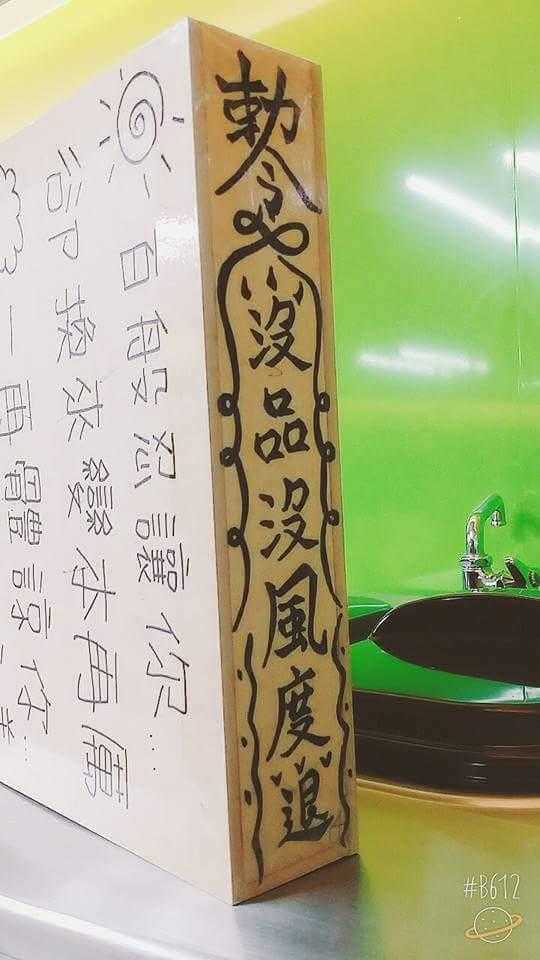 勒令
沒品沒風度退
百般忍讓你...
卻換來變本再厲
一再體諒你...
#B612